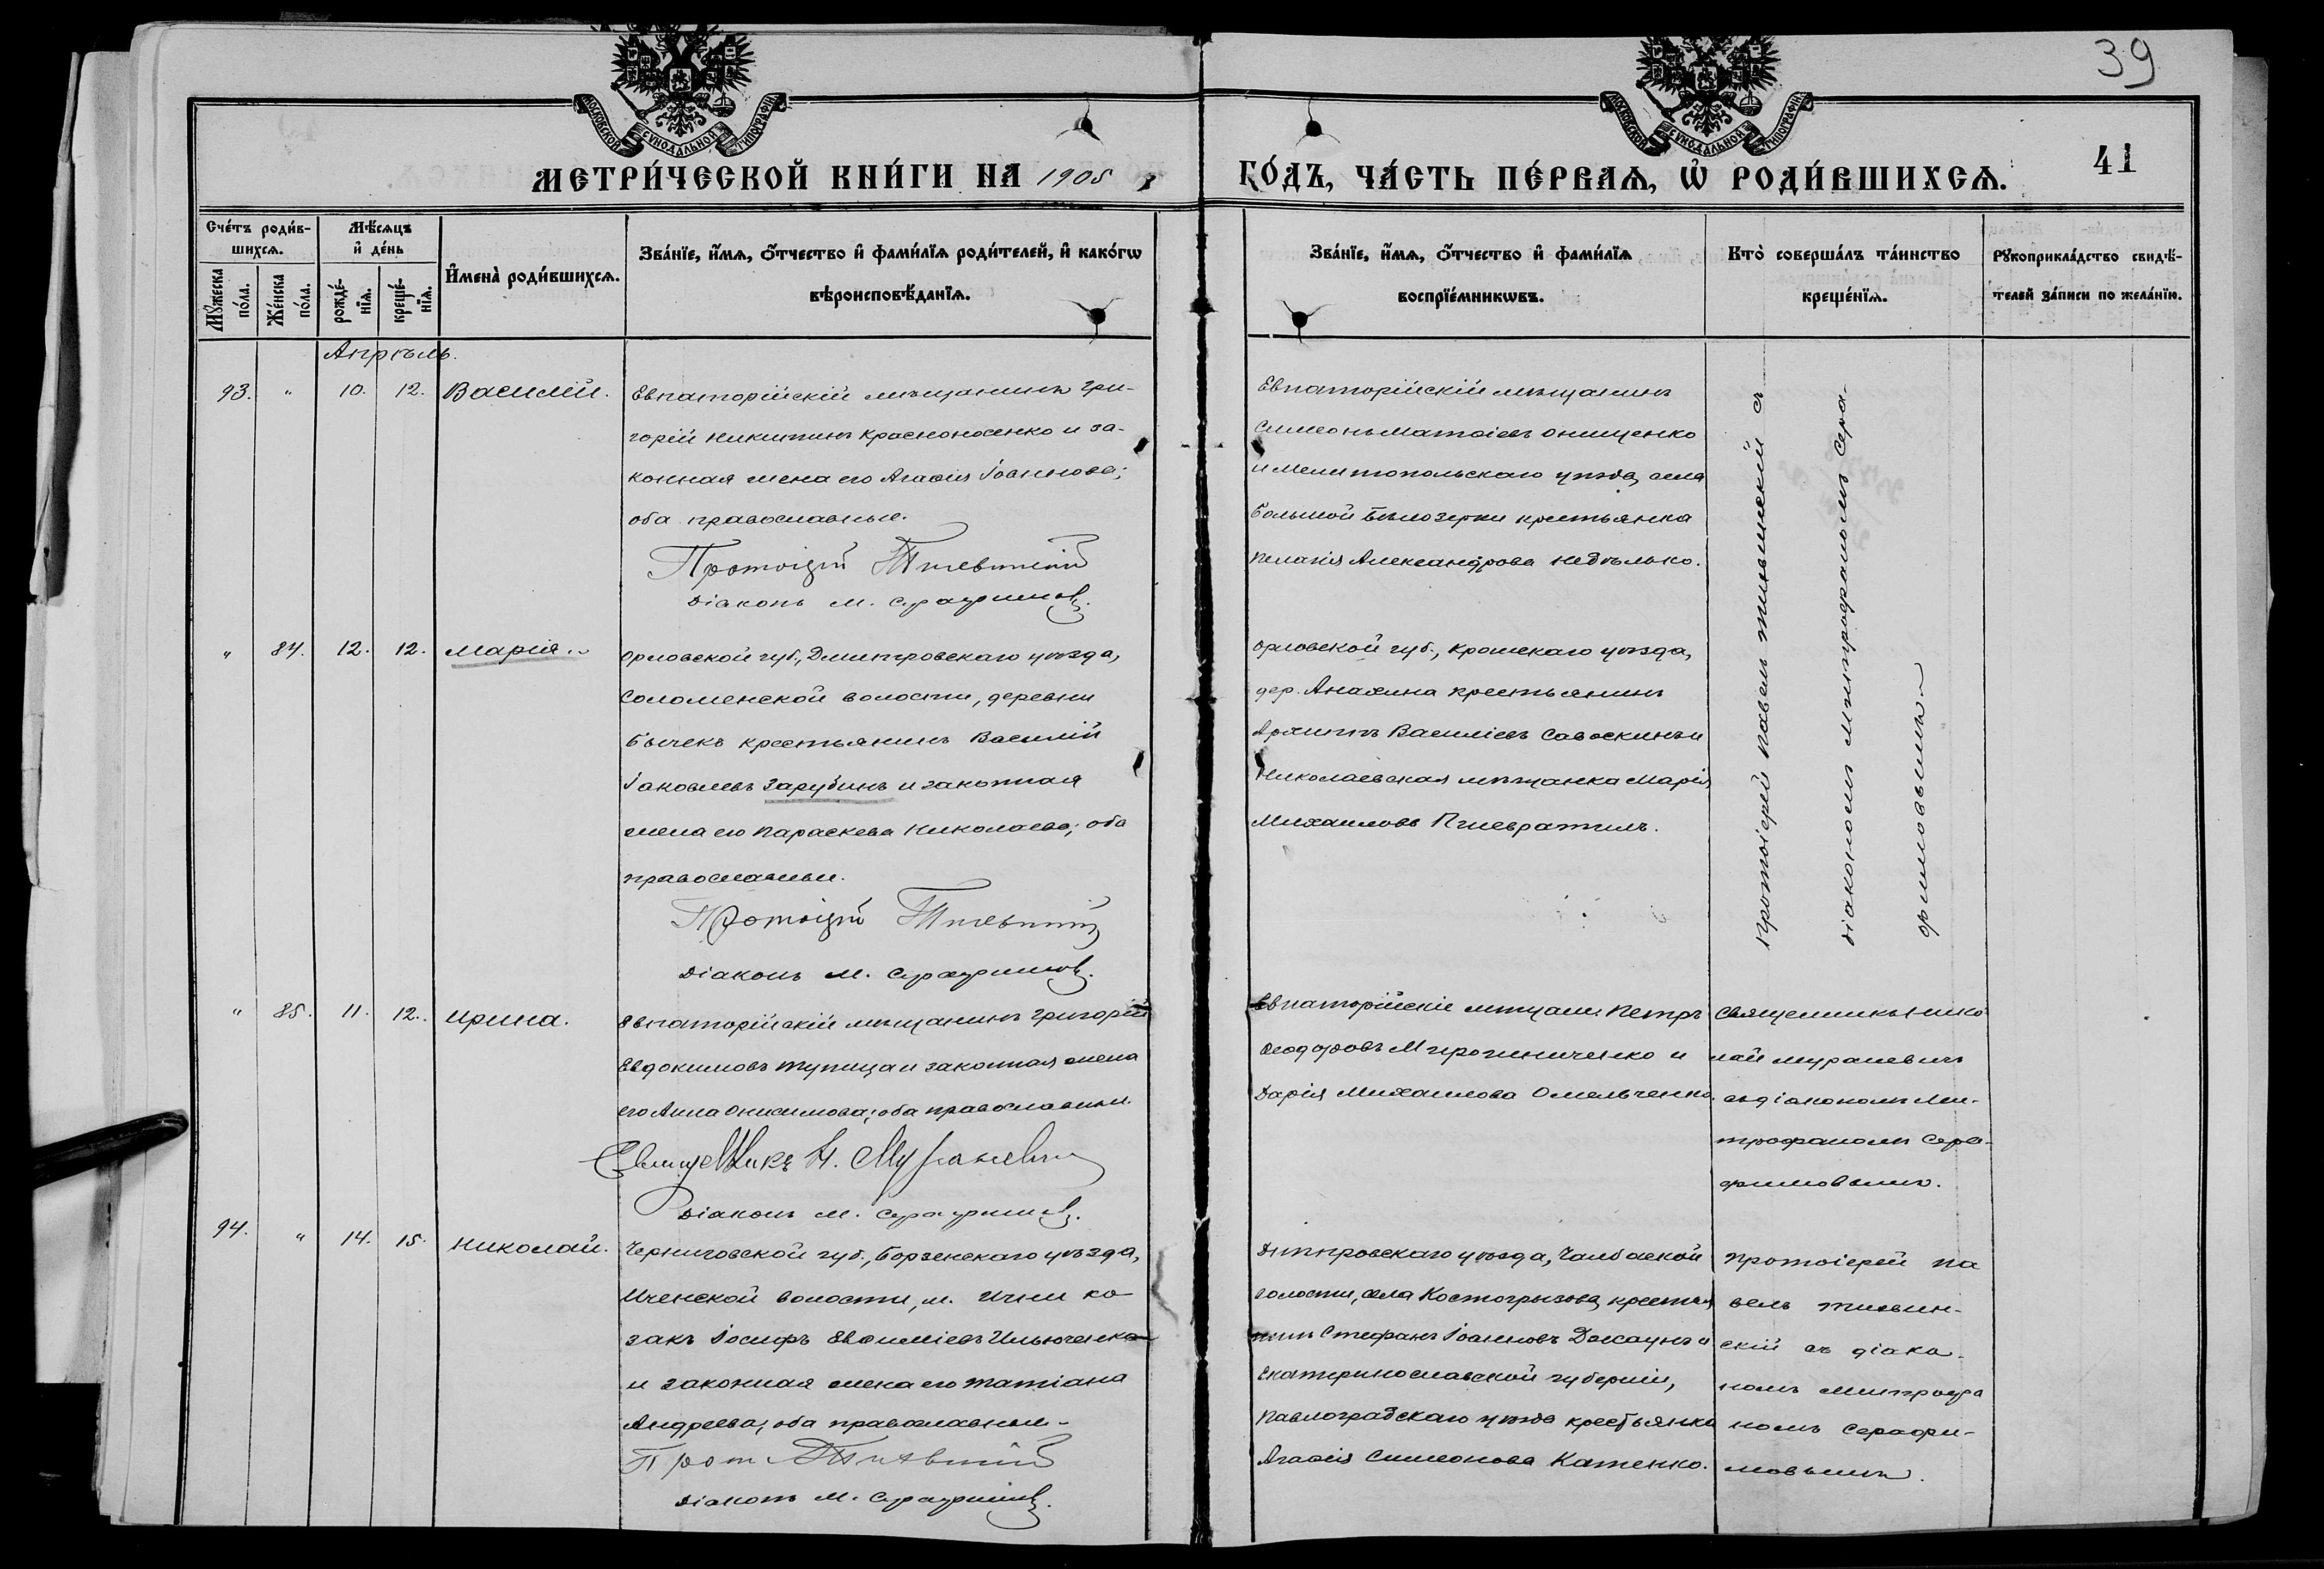 39
МОСКОВСКОЙ СѴНОДАЛЬНОЙ ТИПОГРАФІИ
МОСКОВСКОЙ СѴНОДАЛЬНОЙ ТИПОГРАФІИ
МЕТРИ́ЧЕСКОЙ КНИ́ГИ НА 1905 ГО́ДЪ, ЧА́СТЬ ПЕ́РВАѦ, Ѡ РОДИ́ВШИХСѦ. 41
Сче́тъ роди́в-
шихсѧ.
Мꙋ́жеска
по́ла.
Же́нска
по́ла.
Мѣ́сѧцъ
и҆ де́нь
рожде́-
нїѧ.
креще́-
нїѧ.
И҆мена̀ роди́вшихсѧ.
Зва́нїе, и҆́мѧ, ѻ҆́тчество и҆ фами́лїѧ роди́телей, и҆ како́гѡ
вѣроисповѣ́данїѧ.
Зва́нїе, и҆́мѧ, ѻ҆́тчество и҆ фами́лїѧ
воспрїе́мникѡвъ.
Кто̀ соверша́лъ та́инство
креще́нїѧ.
Рꙋкоприкла́дство свидѣ́-
телей за́писи по жела́нїю.
Апрѣль.
93. " 10. 12. Василій.
Евпаторійскій мѣщанинъ Гри-
горій Никитинъ Красноносенко и за-
конная жена его Агаѳія Іоаннова;
оба православные.
Протоіерей Тихвинскій
Діаконъ М. Серафимовъ.
Евпаторійскій мѣщанинъ
Симеонъ Матѳіевъ Онищенко
и Мелитопольскаго уѣзда, села
Большой Бѣлозерки крестьянка
Пелагія Александрова Недѣлько.
Протоіерей Павелъ Тихвинскій съ
діакономъ Митрофаномъ Сера-
фимовымъ.
" 84. 12. 12. Марія.
Орловской губ., Дмитровскаго уѣзда,
Соломенской волости, деревни
Бычекъ крестьянинъ Василій
Іаковлевъ Зарубинъ и законная
жена его Параскева Николаева; оба
православные.
Протоіерей Тихвинскій
Діаконъ М. Серафимовъ.
Орловской губ., Кромскаго уѣзда,
дер. Анахина крестьянинъ
Архиппъ Василіевъ Савоскинъ и
Николаевская мѣщанка Марія
Михаилова
" 85. 11. 12. Ирина.
Евпаторійскій мѣщанинъ Григорій
Евдокимовъ Тупица и законная жена
его Анна Онисимова; оба православные.
Священникъ Н. Мураневичъ
Діаконъ М. Серафимовъ.
Евпаторійскіе мѣщане Петръ
Ѳеодоровъ Мирошниченко и
Дарія Михаилова Омельченко.
Священникъ Нико-
лай Мураневичъ
съ діакономъ Ми-
трофаномъ Сера-
фимовымъ.
94. " 14. 15. Николай.
Черниговской губ., Борзенскаго уѣзда,
Иченской волости, м. Ични ко-
закъ Іосифъ Евѳиміевъ Ильюченко
и законная жена его Татіана
Андреева; оба православные.
Прот. Тихвинскій
Діаконъ М. Серафимовъ.
Днѣпровскаго уѣзда, Чалбасской
волости, села Костогрызова, крестья-
нинъ Стефанъ Іоанновъ и
Екатеринославской губерніи,
Павлоградскаго уѣзда крестьянка
Агаѳія Симеонова Катенко.
Протоіерей Па-
велъ Тихвин-
скій съ діако-
номъ Митрофа-
номъ Серафи-
мовымъ.